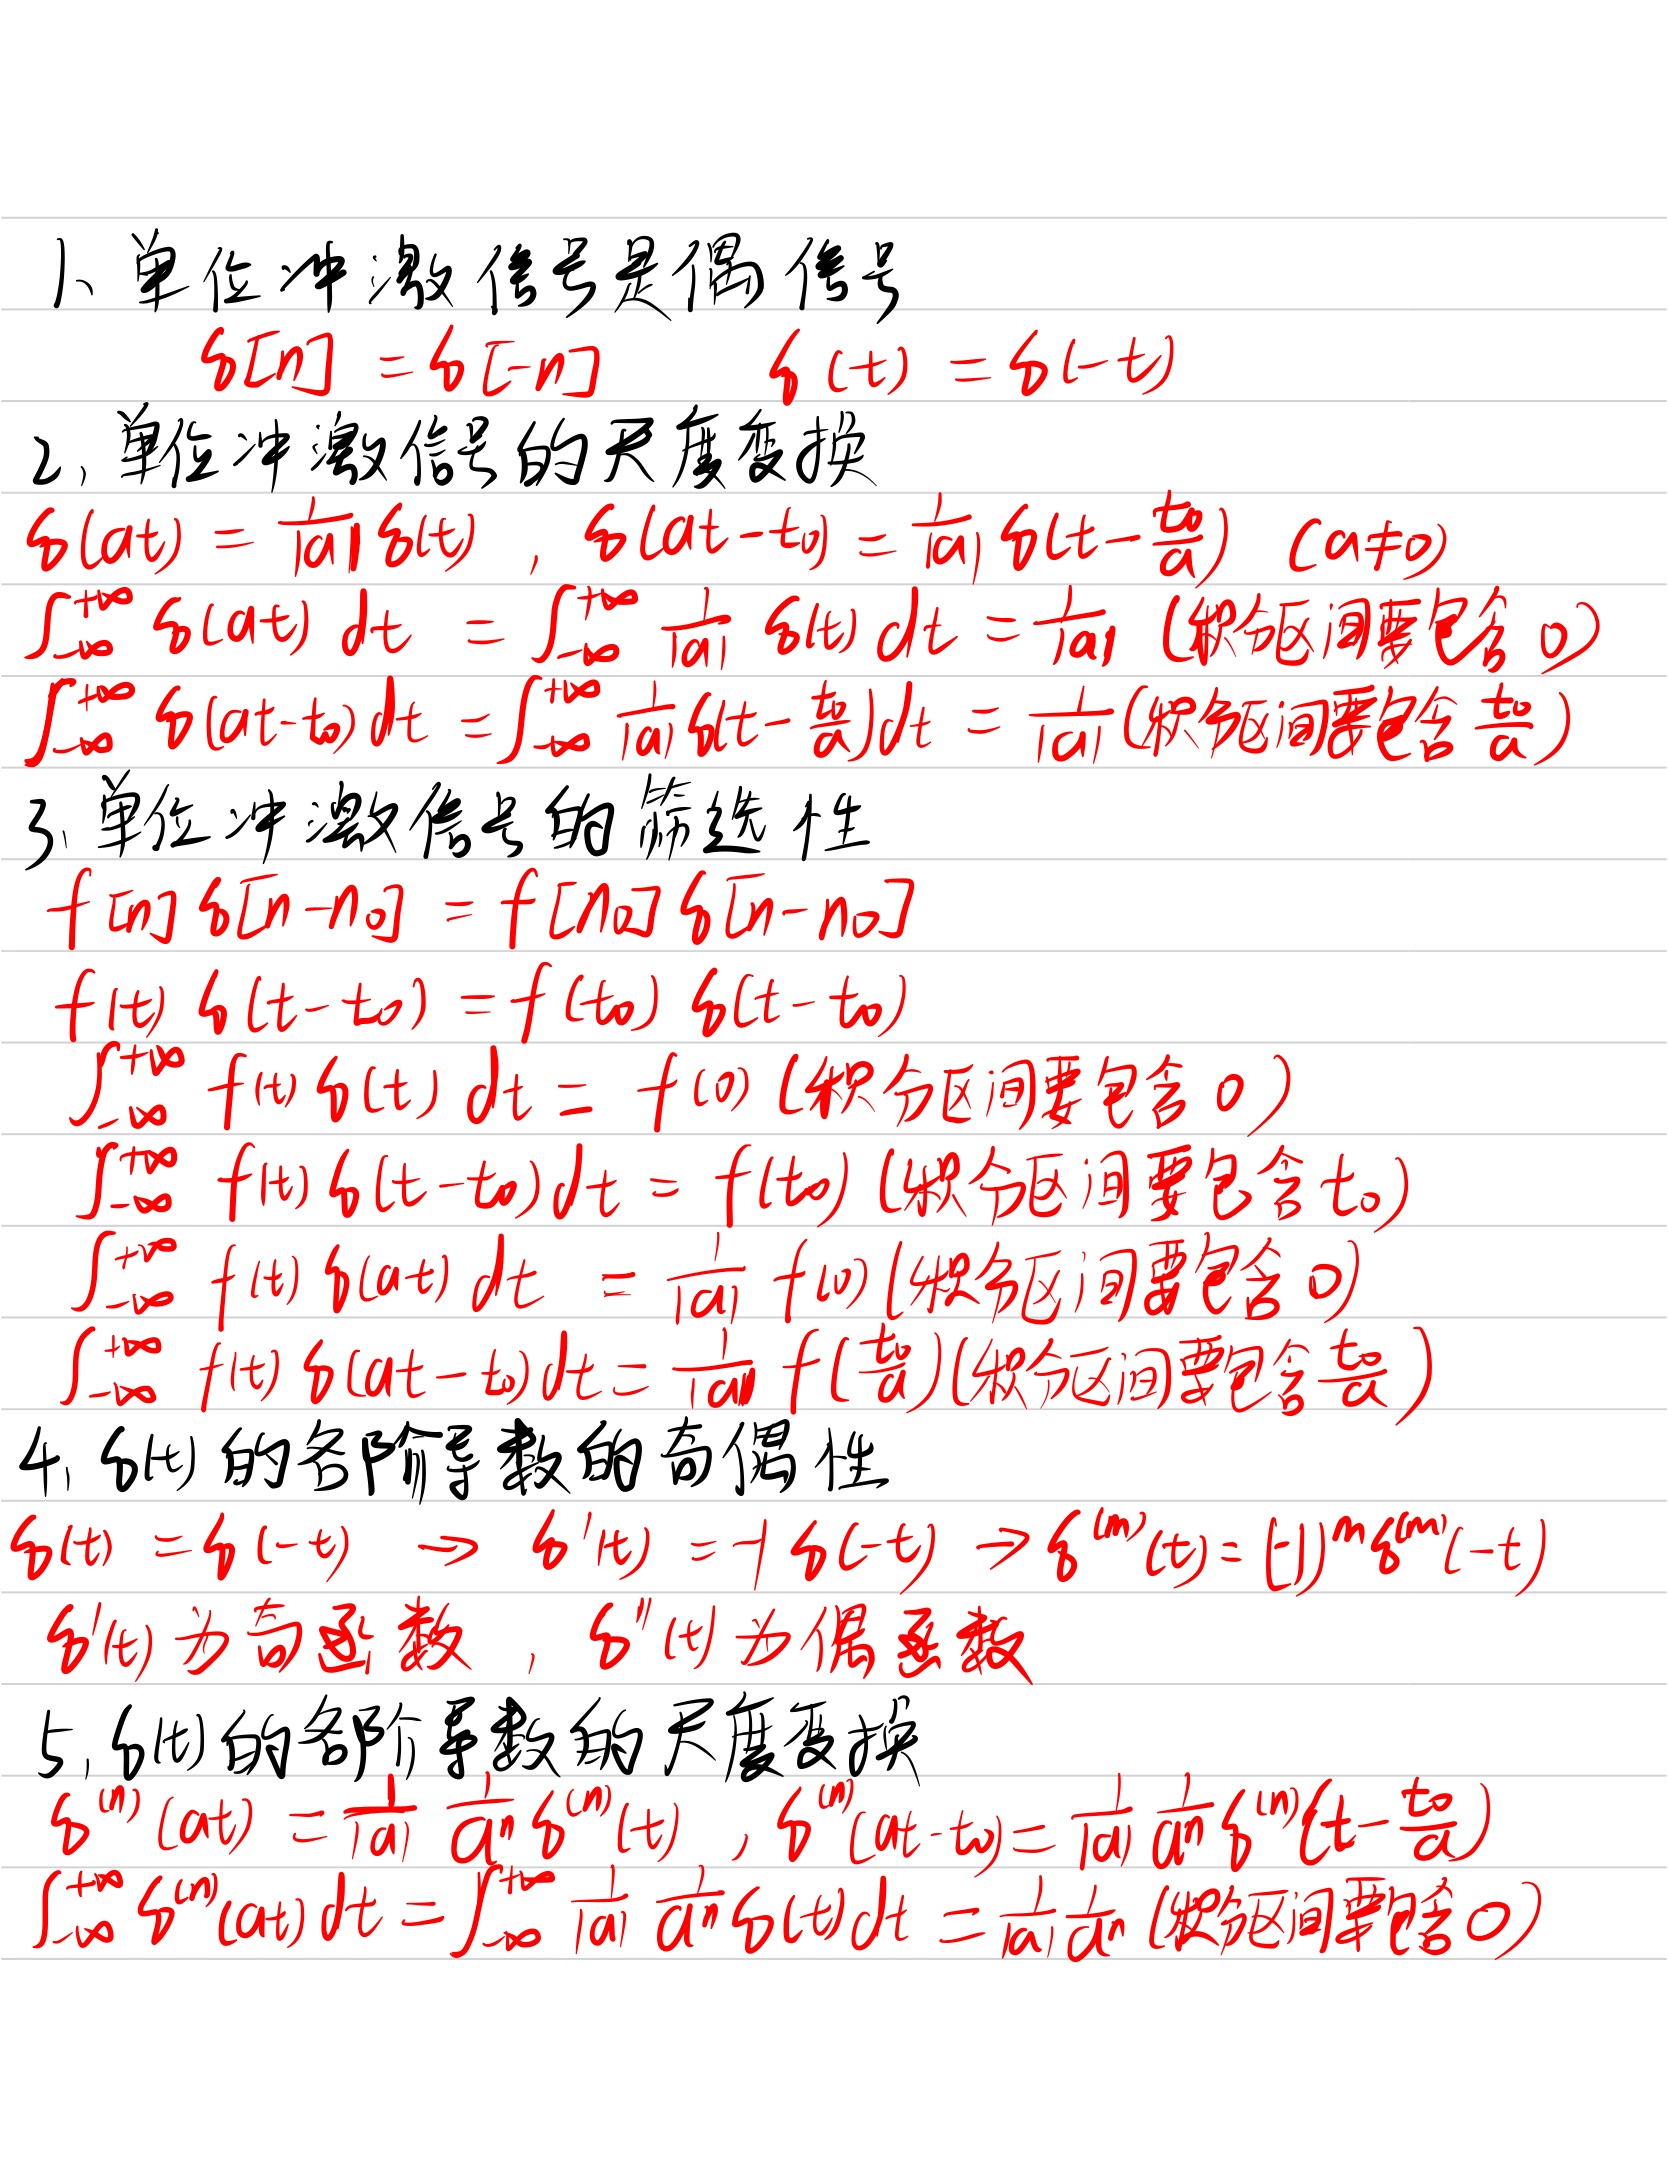 1、单位冲激信号是偶信号
δ[n] = δ[-n]　δ(t) = δ(-t)
2、单位冲激信号的尺度变换
δ(at) = 1/|a| δ(t) , δ(at-t₀) = 1/|a| δ(t - t₀/a) (a≠0)
∫_{-∞}^{+∞} δ(at) dt = ∫_{-∞}^{+∞} 1/|a| δ(t) dt = 1/|a| (积分区间要包含 0)
∫_{-∞}^{+∞} δ(at-t₀) dt = ∫_{-∞}^{+∞} 1/|a| δ(t - t₀/a) dt = 1/|a| (积分区间要包含 t₀/a)
3、单位冲激信号的筛选性
f[n] δ[n-n₀] = f[n₀] δ[n-n₀]
f(t) δ(t-t₀) = f(t₀) δ(t-t₀)
∫_{-∞}^{+∞} f(t) δ(t) dt = f(0) (积分区间要包含 0)
∫_{-∞}^{+∞} f(t) δ(t-t₀) dt = f(t₀) (积分区间要包含 t₀)
∫_{-∞}^{+∞} f(t) δ(at) dt = 1/|a| f(0) (积分区间要包含 0)
∫_{-∞}^{+∞} f(t) δ(at-t₀) dt = 1/|a| f(t₀/a) (积分区间要包含 t₀/a)
4、δ(t) 的各阶导数的奇偶性
δ(t) = δ(-t) → δ'(t) = -1 δ(-t) → δ^(n)(t) = (-1)^n δ^(n)(-t)
δ'(t) 为奇函数 , δ''(t) 为偶函数
5、δ(t) 的各阶导数的尺度变换
δ^(n)(at) = 1/|a| 1/a^n δ^(n)(t) , δ^(n)(at-t₀) = 1/|a| 1/a^n δ^(n)(t - t₀/a)
∫_{-∞}^{+∞} δ^(n)(at) dt = ∫_{-∞}^{+∞} 1/|a| 1/a^n δ(t) dt = 1/|a| 1/a^n (积分区间要包含 0)